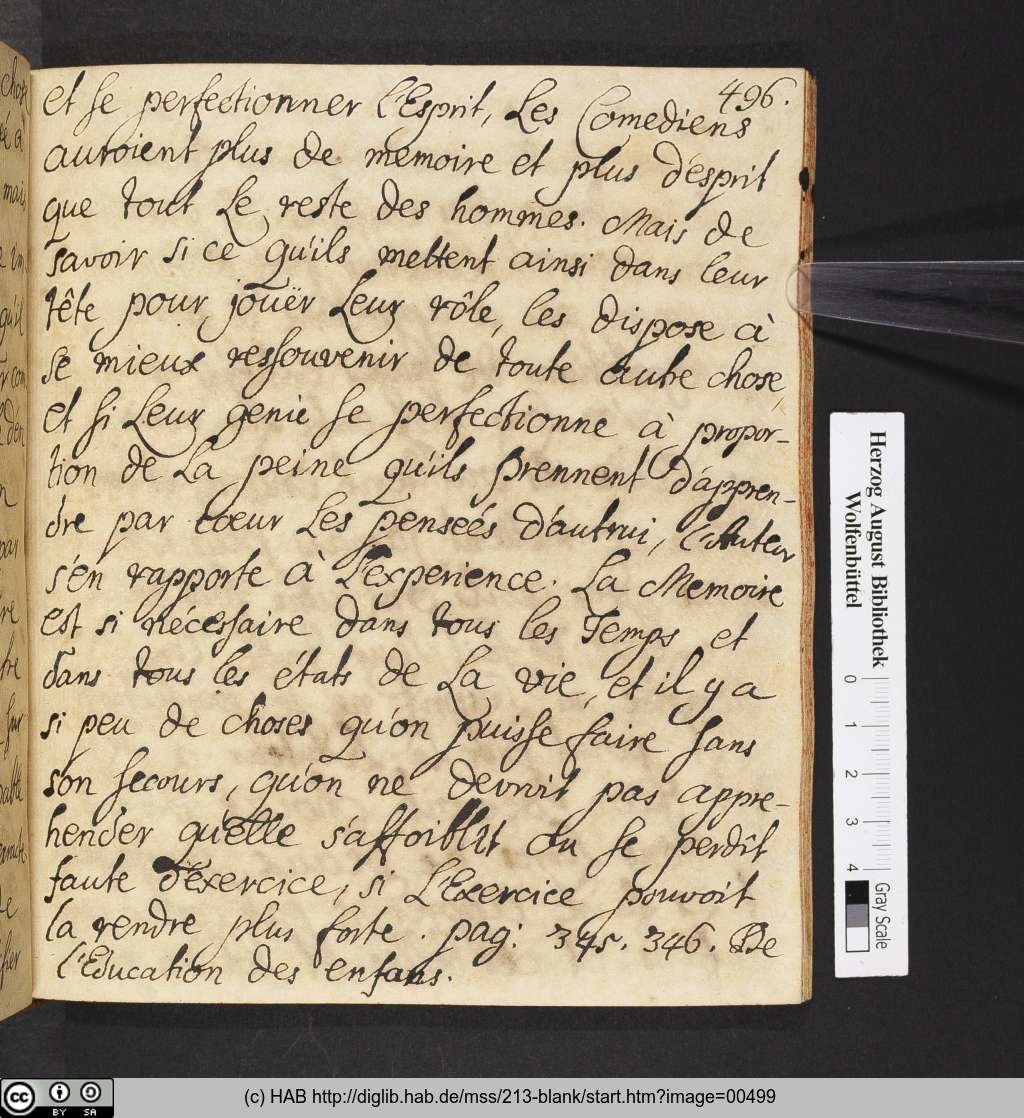 496.
et se perfectionner l'Esprit, Les Comediens
auroient plus de memoire et plus d'esprit
que tout Le reste des hommes. Mais de
savoir si ce qu'ils mettent ainsi dans leur
tête pour jouër Leur rôle, les dispose à
se mieux ressouvenir de toute autre chose,
et si Leur genie se perfectionne à propor-
tion de La peine qu'ils prennent d'appren-
dre par coeur Les penseés d'autrui, l'Auteur
s'en rapporte à L'experience. La Memoire
est si nécessaire dans tous les Temps et
dans tous les états de La vie, et il y a
si peu de choses qu'on puisse faire sans
son secours, qu'on ne devroit pas appre-
hender qu'elle s'affoiblit ou se perdît
faute d'exercice, si L'Exercice pouvoit
la rendre plus forte. pag: 345. 346. De
l'Education des enfans.
Herzog August Bibliothek
Wolfenbüttel
0 1 2 3 4
Gray Scale
cc BY SA
(c) HAB http://diglib.hab.de/mss/213-blank/start.htm?image=00499